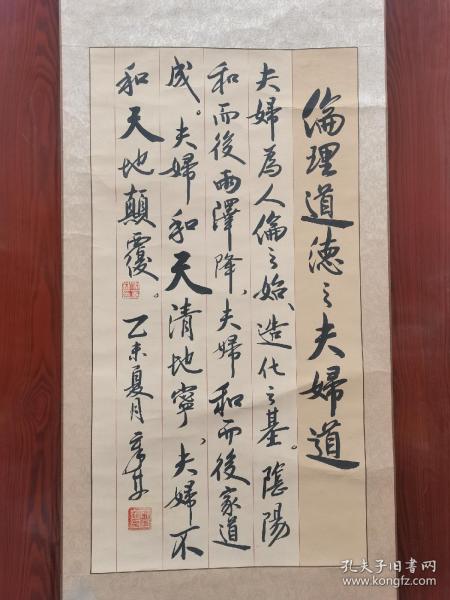 倫理道德之夫婦道
夫婦為人倫之始、造化之基。陰陽
和而後雨澤降、夫婦和而後家道
成。夫婦和天清地寧、夫婦不
和天地顛覆。乙未夏月
孔夫子旧书网
www.kongfz.com